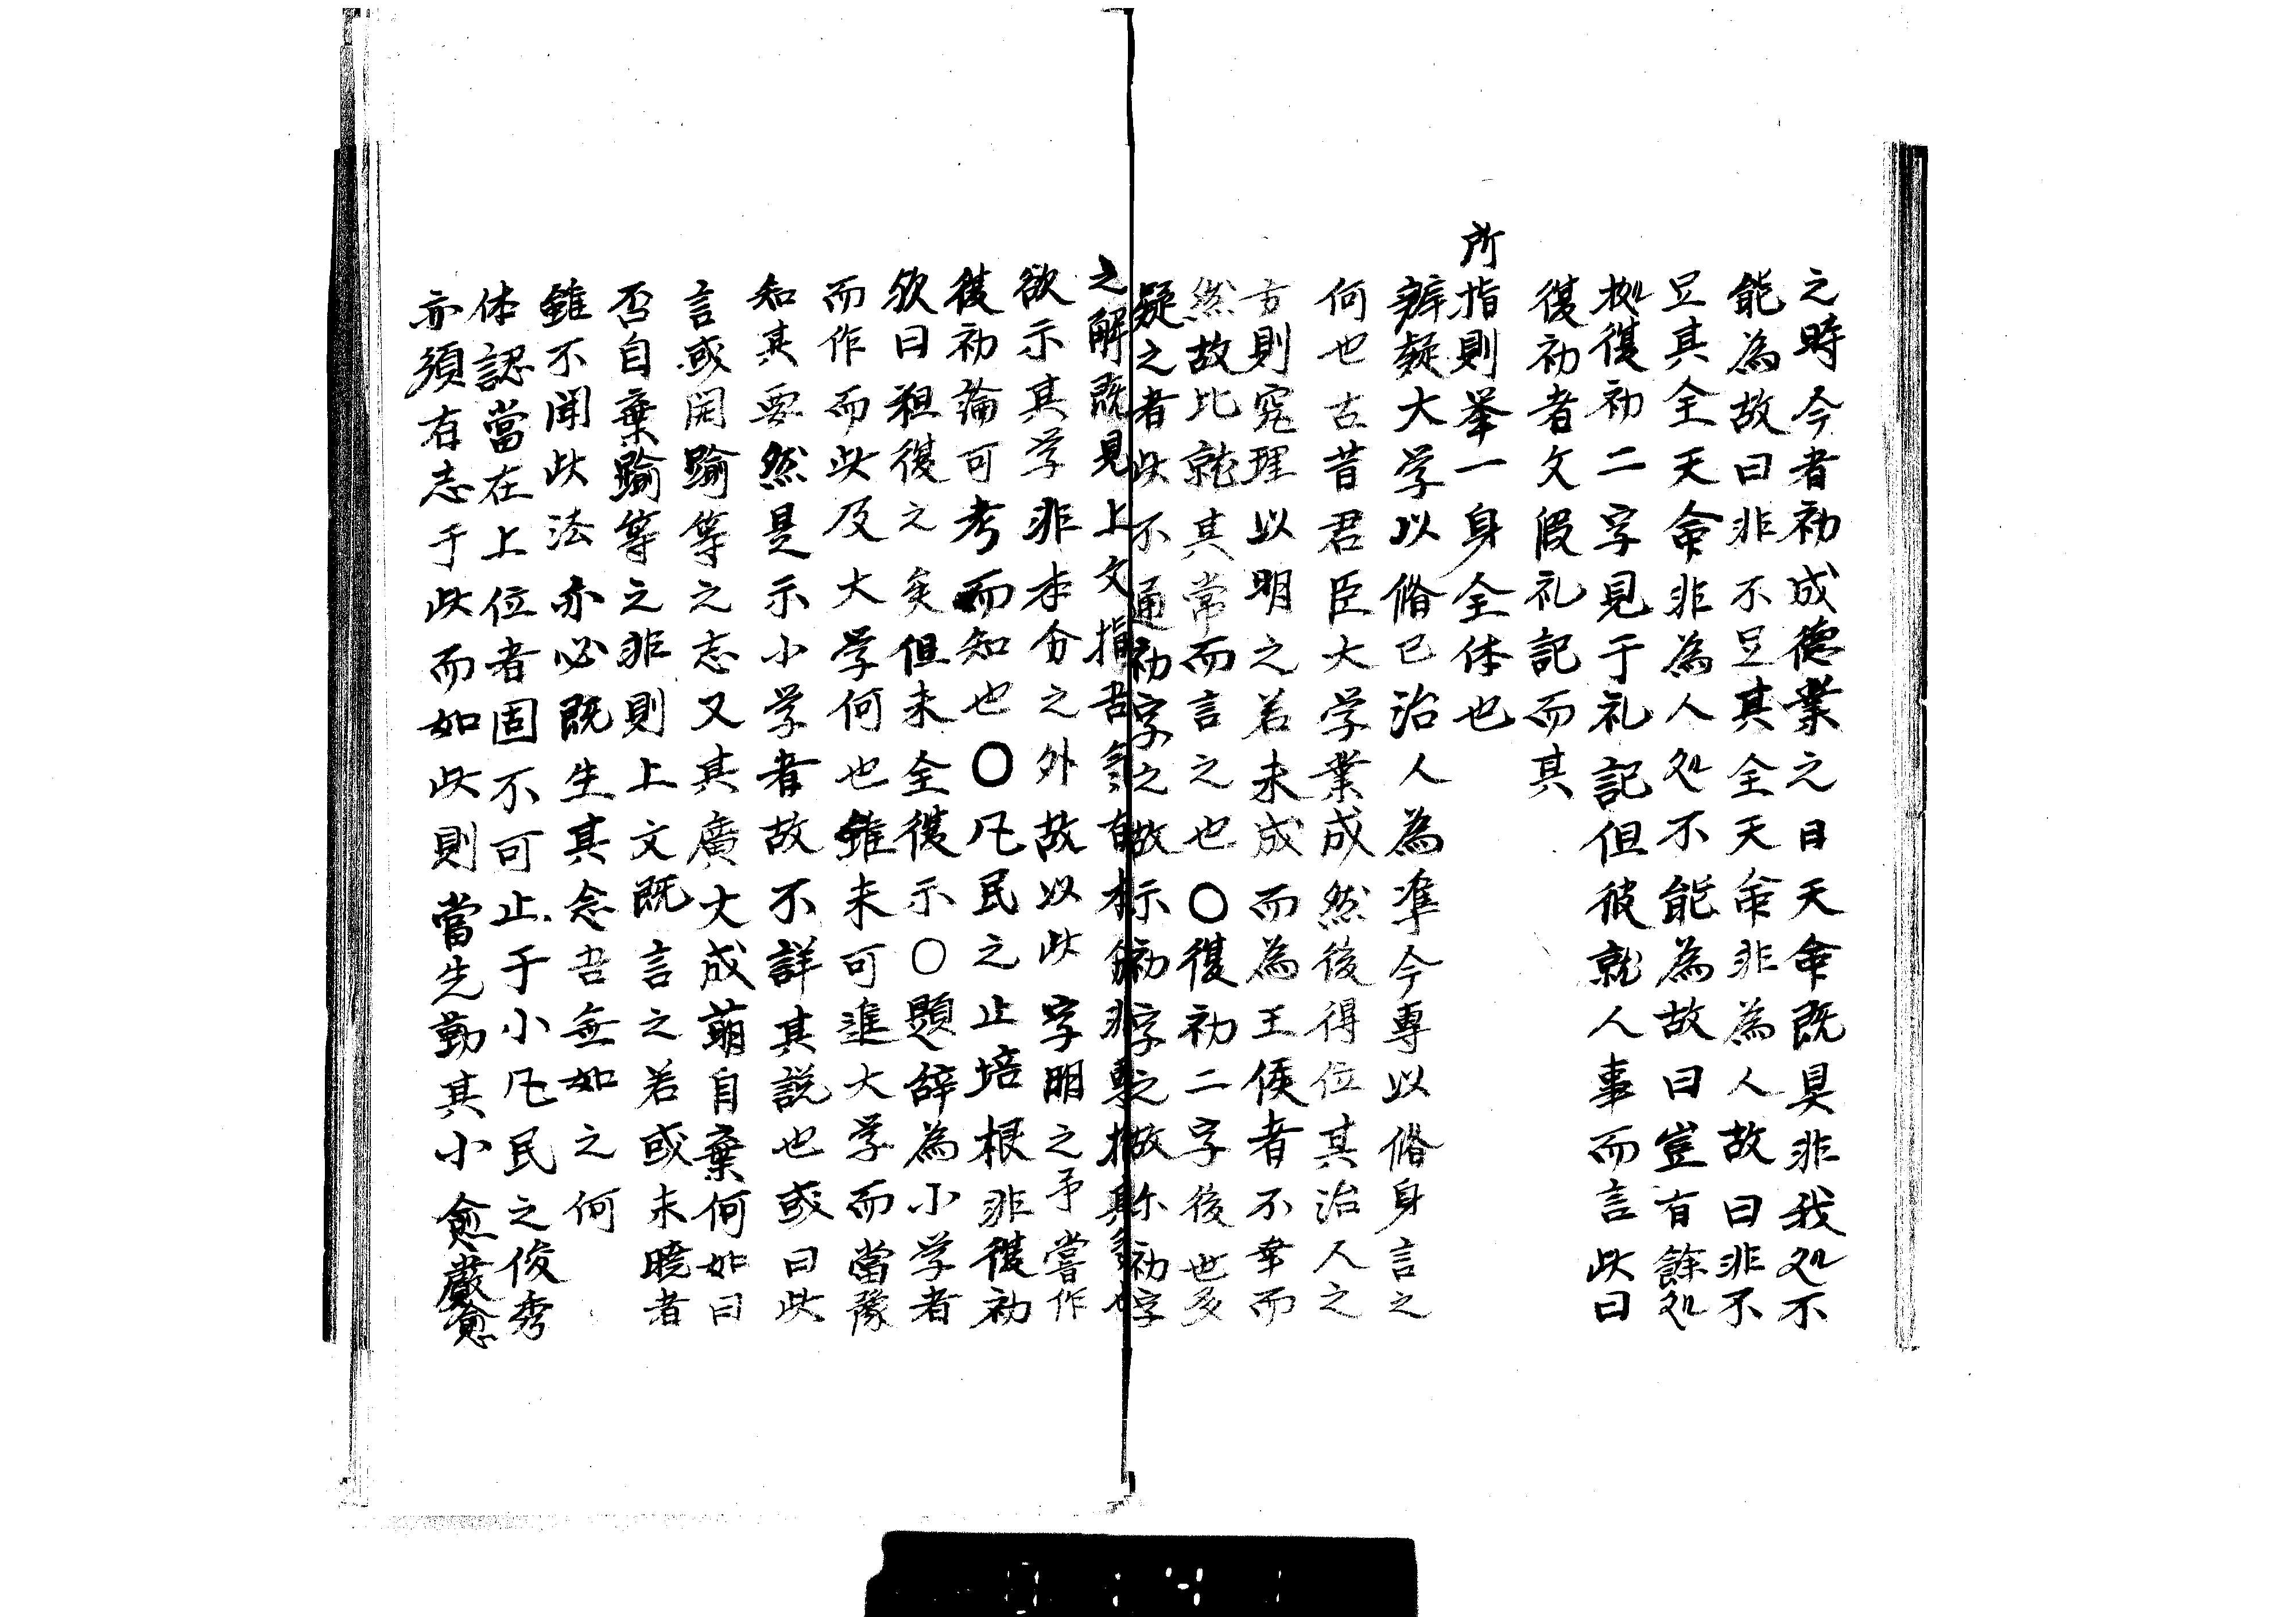 之時今者初成德業之日天命既具非我処不
能為故曰非不足其全天命非為人故曰非不
足其全天命非為人処不能為故曰豈有餘処
復初二字見于礼記但彼就人事而言此曰
復初者文假礼記而其
所指則挙一身全体也
辨疑大学以脩已治人為準今專以脩身言之
何也古昔君臣大学業成然後得位其治人之
方則窮理以明之若未成而為王侯者不幸而
然故比就其常而言之也〇復初二字後世多
疑之者此不通初字之故示初字之故初字
之解既見上文指吾有本分非其
欲示其学非本分之外故以此字明之予嘗作
復初論可考而知也〇凡民之止培根非復初
欤曰粗復之矣但未全復示〇題辞為小学者
而作而此及大学何也雖未可進大学而當豫
知其要然是示小学者故不詳其説也或曰此
言或闁踰等之志又其廣大成萠自棄何如曰
否自棄踰等之非則上文既言之若或未暁者
雖不聞此法亦必既生其念吾無如之何
体認當在上位者固不可止于小凡民之俊秀
亦須有志于此而如此則當先勤其小愈嚴愈